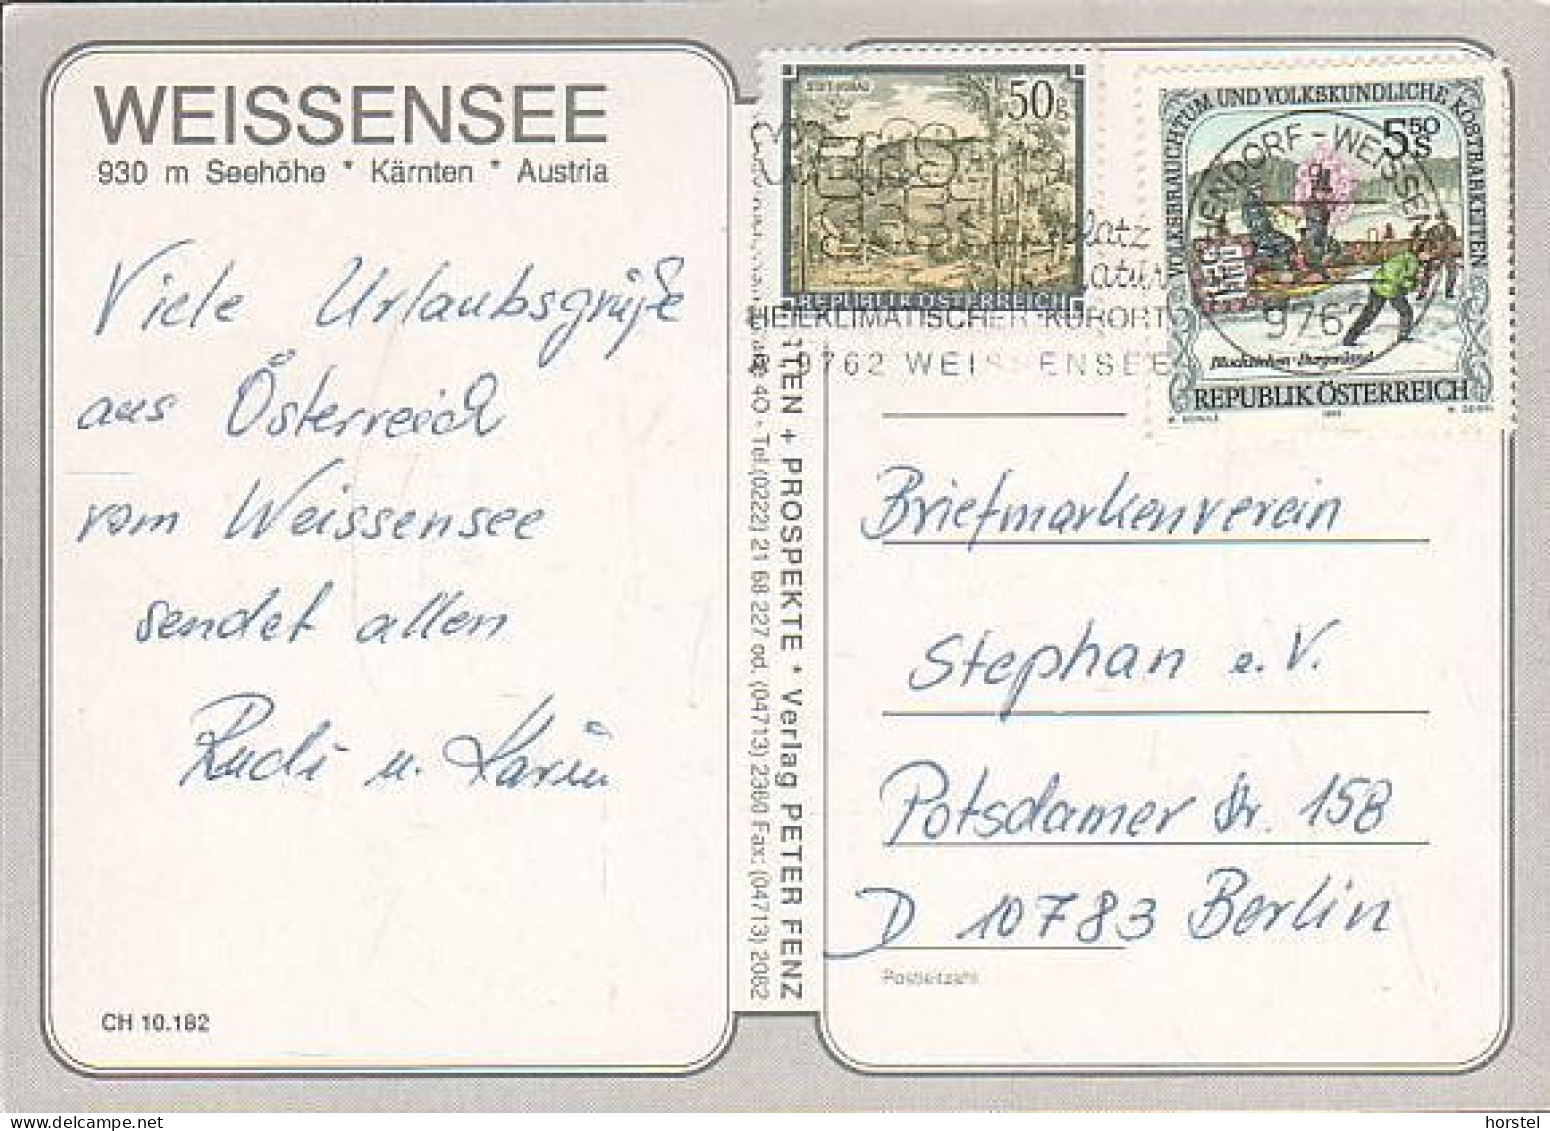 WEISSENSEE
930 m Seehöhe * Kärnten * Austria
Viele Urlaubsgrüße
aus Österreich
vom Weissensee
sendet allen
Rudi u. Karin
CH 10.182
KARTEN + PROSPEKTE * Verlag PETER FENZ
40 - Tel.(0222) 21 68 227 od. (04713) 2380 Fax: (04713) 2082
50 g
REPUBLIK ÖSTERREICH
VOLKSBRAUCHTUM UND VOLKSKUNDLICHE KOSTBARKEITEN
5.50 S
Blochziehen - Burgenland
REPUBLIK ÖSTERREICH
HEILKLIMATISCHER KURORT
9762 WEISSENSEE
9762
Briefmarkenverein
Stephan e.V.
Potsdamer Str. 158
D 10783 Berlin
Postleitzahl
horstel